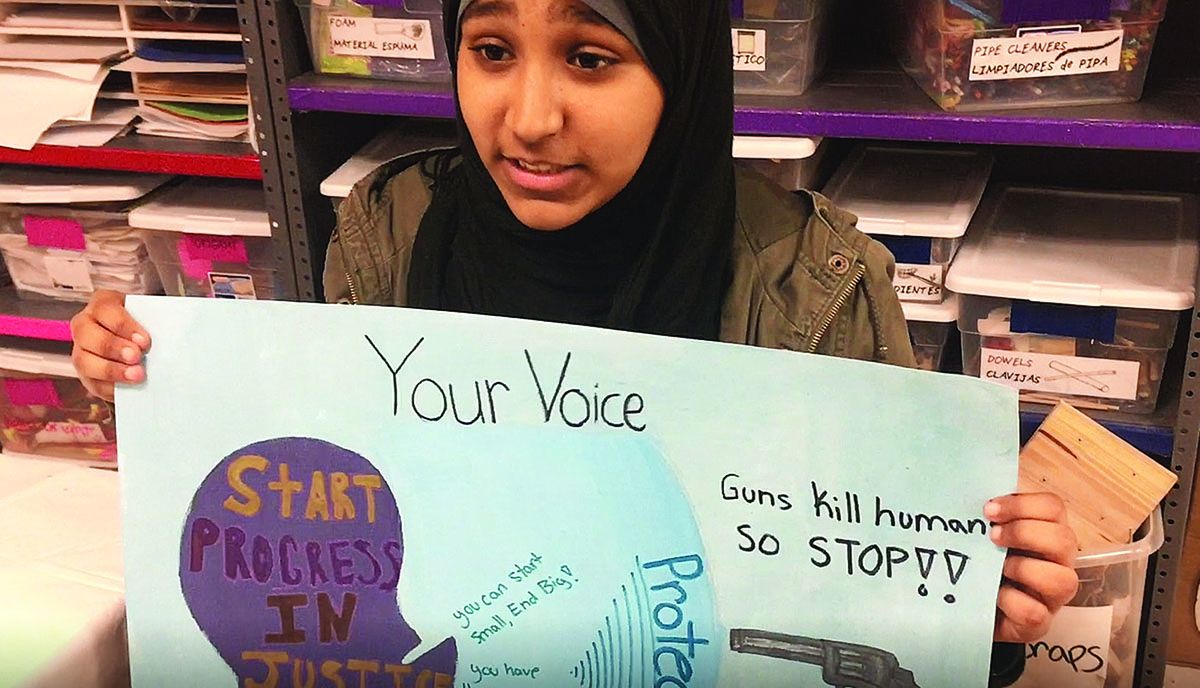 FOAM
MATERIAL ESPUMA
TICO
PIPE CLEANERS
LIMPIADORES de PIPA
DIENTES
DOWELS
CLAVIJAS
Your Voice
START
PROGRESS
IN
JUSTICE
you can start
small, End Big!
you have
Protec
Guns kill human
so STOP!!
raps